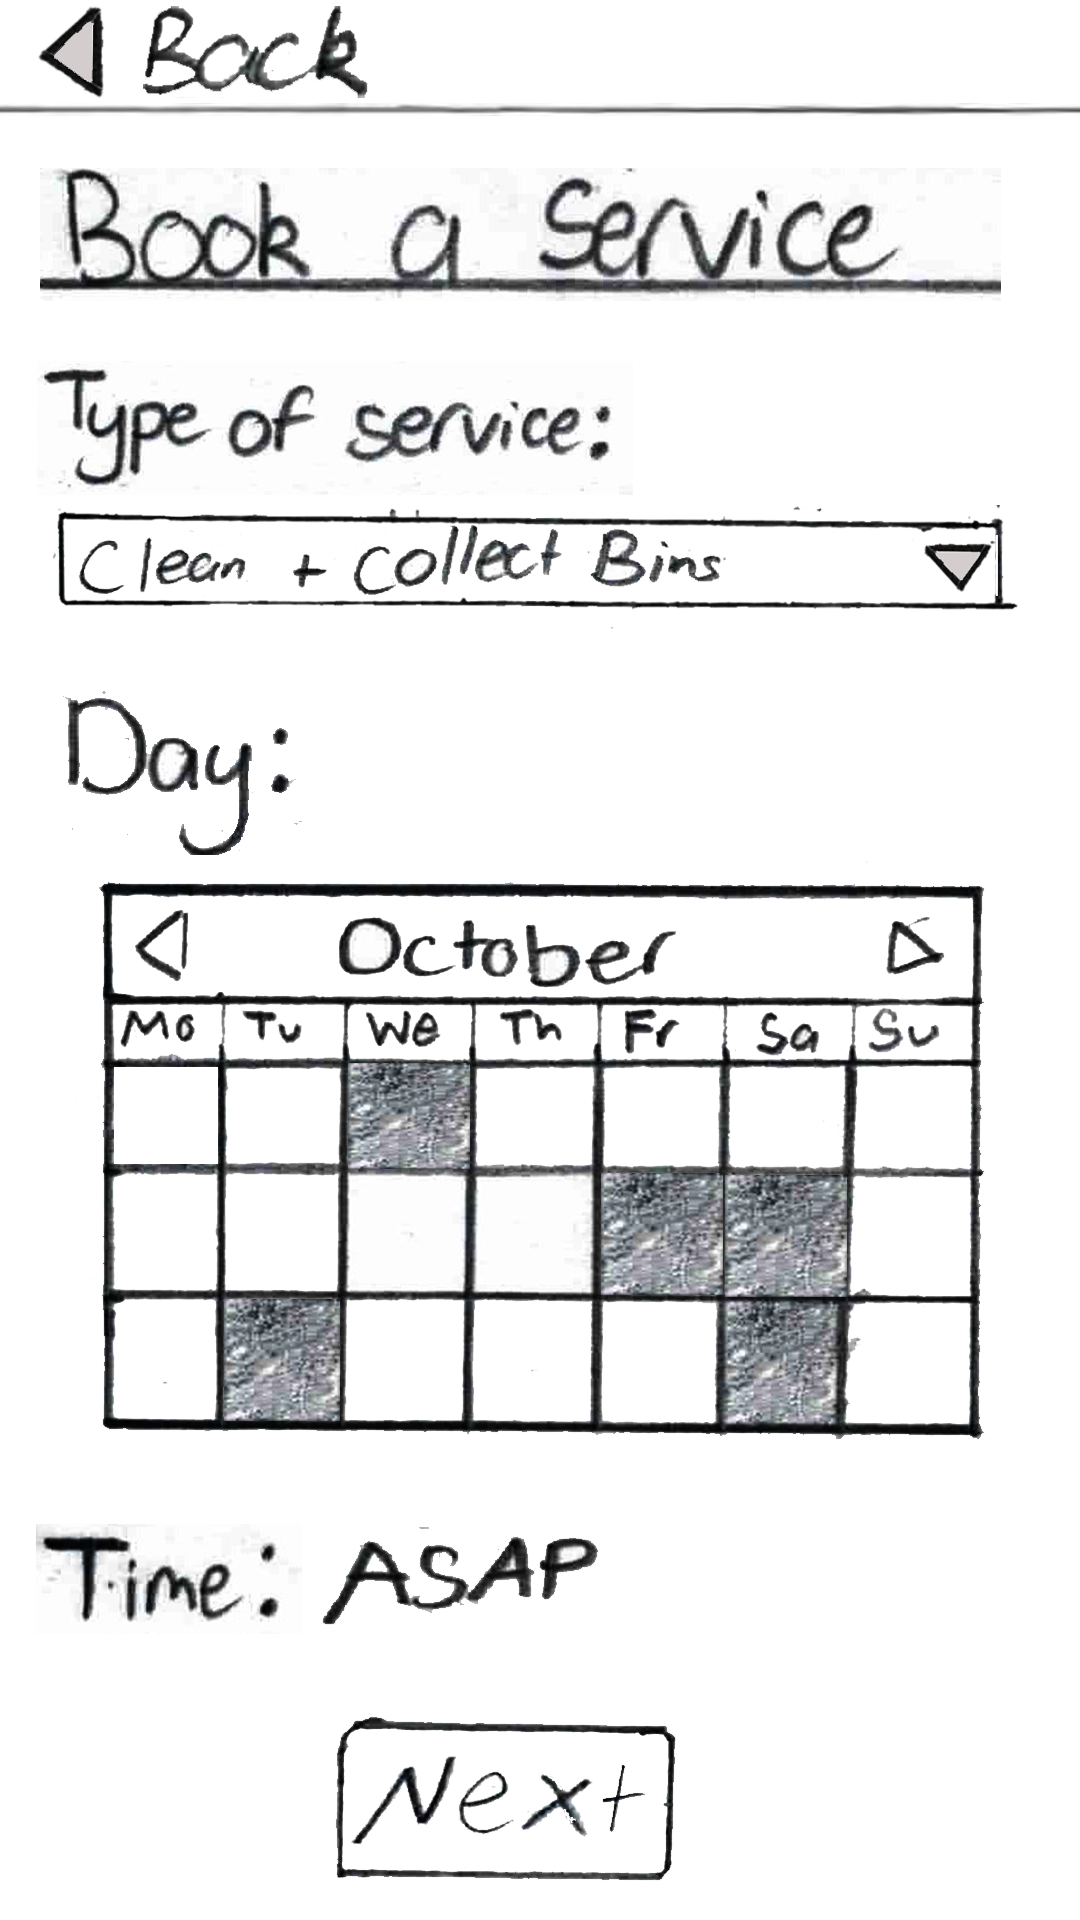 Back
Book a Service
Type of service:
Clean + Collect Bins
Day:
October
Mo Tu We Th Fr Sa Su
Time: ASAP
Next